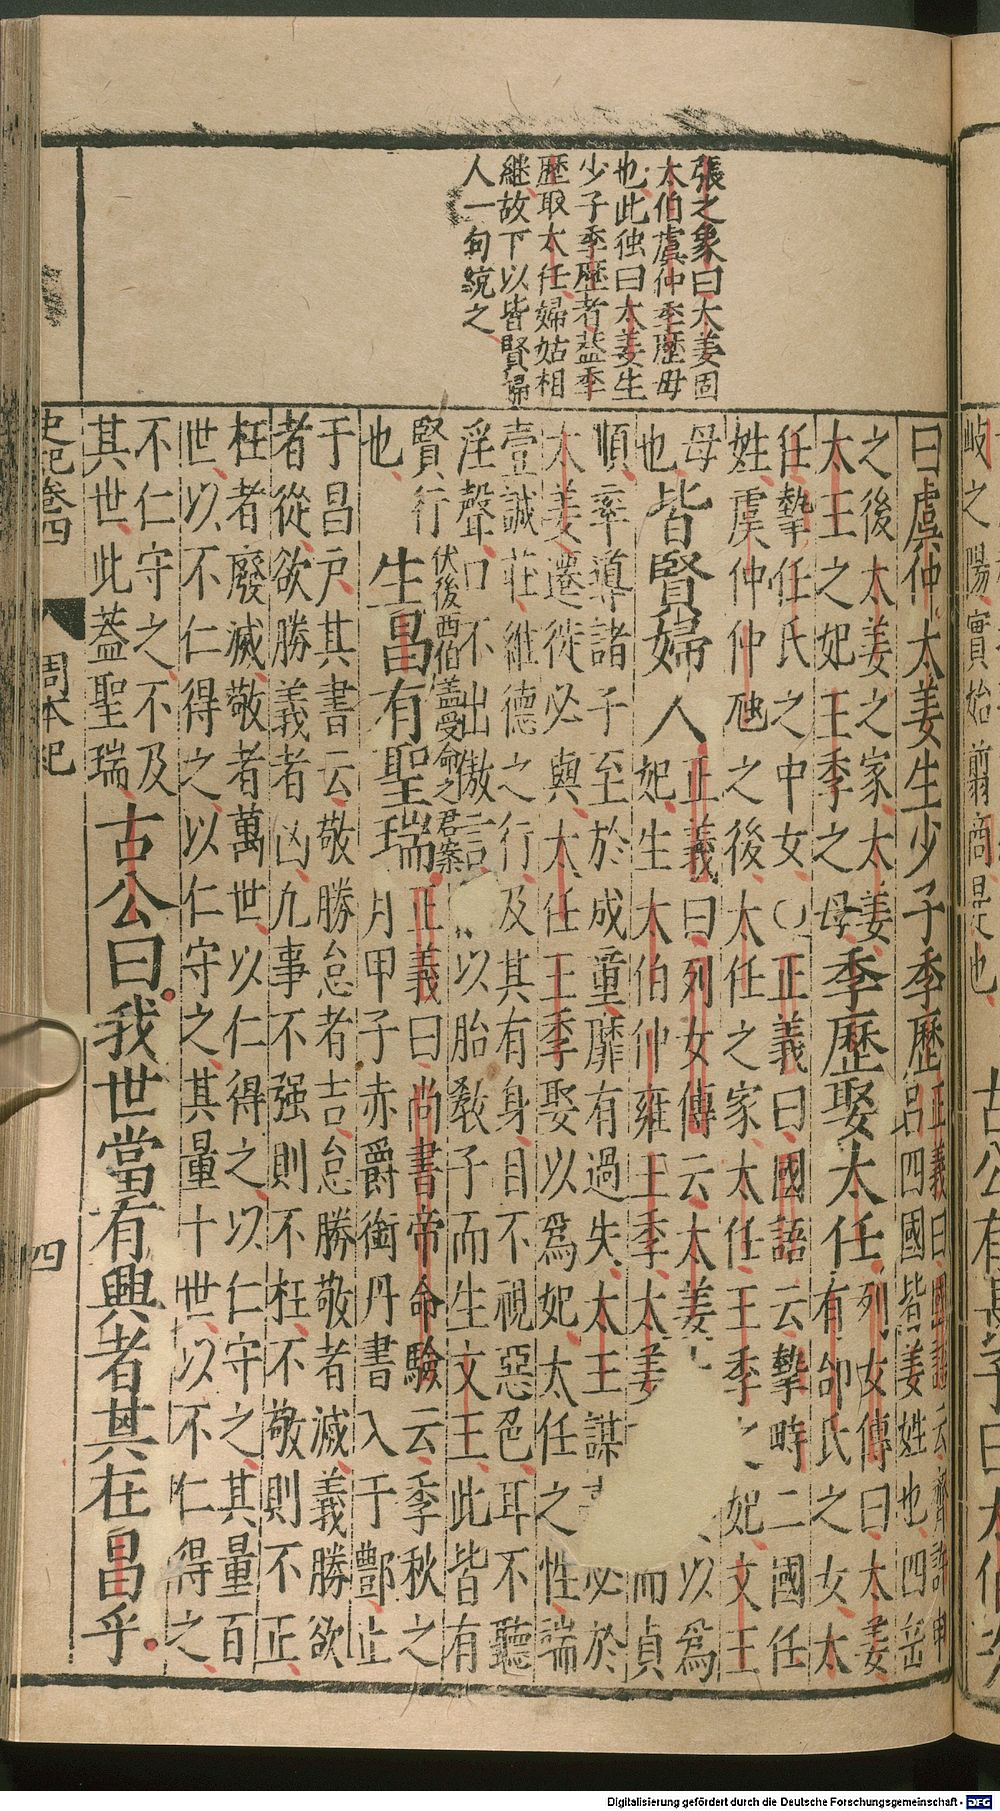 岐之陽實始翦商是也 古公有長子曰太伯次
張之象曰太姜固
太伯虞仲季歷母
也此独曰太姜生
少子季歷者盖季
歷取太任婦姑相
継故下以皆賢婦
人一句統之
曰虞仲太姜生少子季歷正義曰國語云齊許申
呂四國皆姜姓也四岳
之後太姜之家太姜
太王之妃王季之母季歷娶太任列女傳曰太姜
有邰氏之女太
任摯任氏之中女〇正義曰國語云摯疇二國任
姓虞仲仲虺之後太任之家太任王季之妃文王
母
也皆賢婦人正義曰列女傳云太姜以爲
妃生太伯仲雍王季太姜而貞
順率導諸子至於成童靡有過失太王謀必於
太姜遷徙必與太任王季娶以爲妃太任之性端
壹誠莊維德之行及其有身目不視惡色耳不聽
淫聲口不出傲言以胎敎子而生文王此皆有
賢行
也生昌有聖瑞正義曰尚書帝命驗云季秋之
月甲子赤爵銜丹書入于酆止
伏後西伯盖受命之君案
于昌戶其書云敬勝怠者吉怠勝敬者滅義勝欲
者從欲勝義者凶凡事不强則不枉不敬則不正
枉者廢滅敬者萬世以仁得之以仁守之其量百
世以不仁得之以仁守之其量十世以不仁得之
不仁守之不及
其世此蓋聖瑞古公曰我世當有興者其在昌乎
史記卷四 周本紀 四
Digitalisierung gefördert durch die Deutsche Forschungsgemeinschaft - DFG